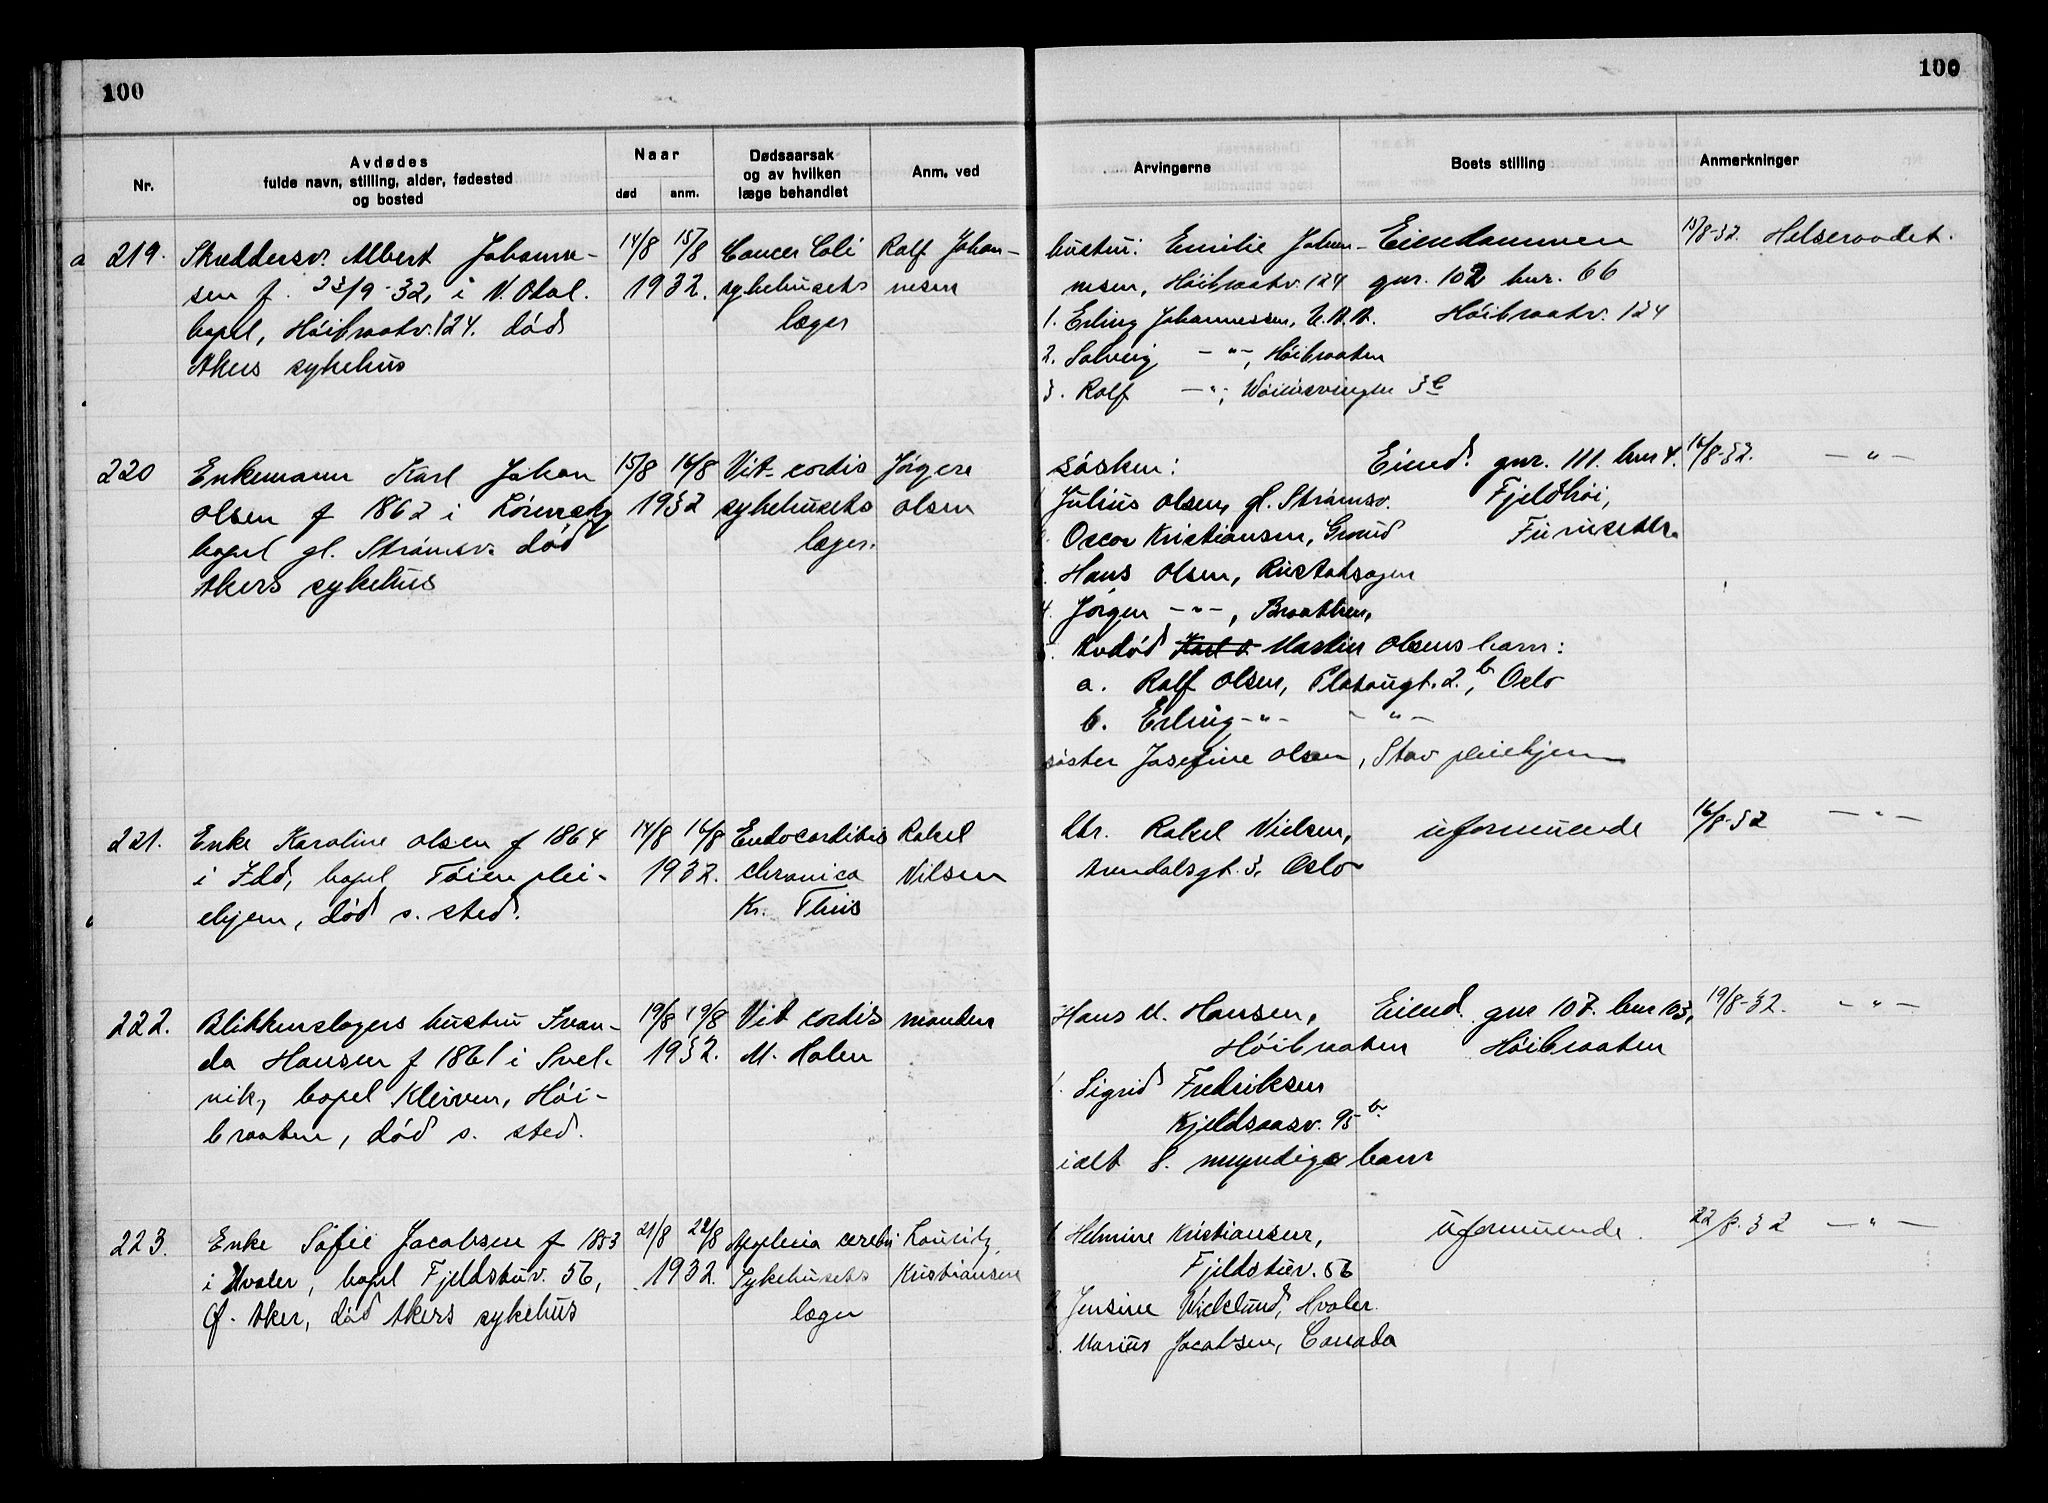 100
100
Nr.
Avdødes
fulde navn, stilling, alder, fødested
og bosted
Naar
død
anm.
Dødsaarsak
og av hvilken
læge behandlet
Anm. ved
Arvingerne
Boets stilling
Anmerkninger
a 219. Skreddersv. Albert Johanne-
sen f. 23/9-32, i V. Odal.
bopel, Höibraatv. 124. död
Akers sykehus
14/8 15/8
1932.
Cancer Coli
sykehusets
læger
Rolf Johan-
nesen
hustru: Emilie Johan-
nesen, Höibraatv. 124
1. Erling Johannessen, U.S.A.
2. Solveig —"—, Höibraaten
3. Rolf —"—, 3c
Eiendommen
gnr. 102 bnr. 66
Höibraatv. 124
15/8-32. Helseraadet.
220 Enkemann Karl Johan
Olsen f 1862 i Lörenskog
bopel gl. Strömsv. död
Akers sykehus
15/8 16/8
1932
Vit. cordis
sykehusets
læger.
Jörgen
Olsen
sösken:
1. Julius Olsen, gl. Strömsv.
2. Oscar Kristiansen, Grorud
3. Hans Olsen, Rustadsagen
4. Jörgen —"—, Braathen,
5. Avdöd Karl O. Martin Olsens barn:
a. Rolf Olsen, Platougt. 2.b, Oslo
b. Erling —"— —"—
söster Josefine Olsen, Stav pleiehjem
Eiend. gnr. 111. bnr 4.
Fjeldhöi,
Furuset
16/8-32. —"—
221. Enke Karoline Olsen f 1864
i Idd, bopel Töien plei-
ehjem, död s. sted.
14/8 16/8
1932.
Endocarditis
chronica
Kr. Thiis
Rakel
Nilsen
Dtr. Rakel Nielsen,
Arendalsgt. 3, Oslo
uformuende
16/8-32 —"—
222. Blikkenslagers hustru Ivan-
da Hansen f 1861 i Svel-
vik, bopel Kleiven, Höi-
braaten, död s. sted.
19/8 19/8
1932.
Vit cordis
M. Holen
manden
Hans M. Hansen,
Höibraaten
1. Sigrid Fredriksen
Kjeldsaasv. 95 b
ialt 8. myndige barn
Eiend. gnr 107. bnr 103,
Höibraaten
19/8-32. —"—
223. Enke Sofie Jacobsen f 1853
i Hvaler, bopel Fjeldstuv. 56,
Ø. Aker, död Akers sykehus
21/8 22/8
1932.
Apoplexia cerebri
Sykehusets
læger
Lauritz
Kristiansen
1. Helmine Kristiansen,
Fjeldstuv. 56
2. Jensine Wicklund, Hvaler.
3. Marius Jacobsen, Canada
uformuende.
22/8-32 —"—